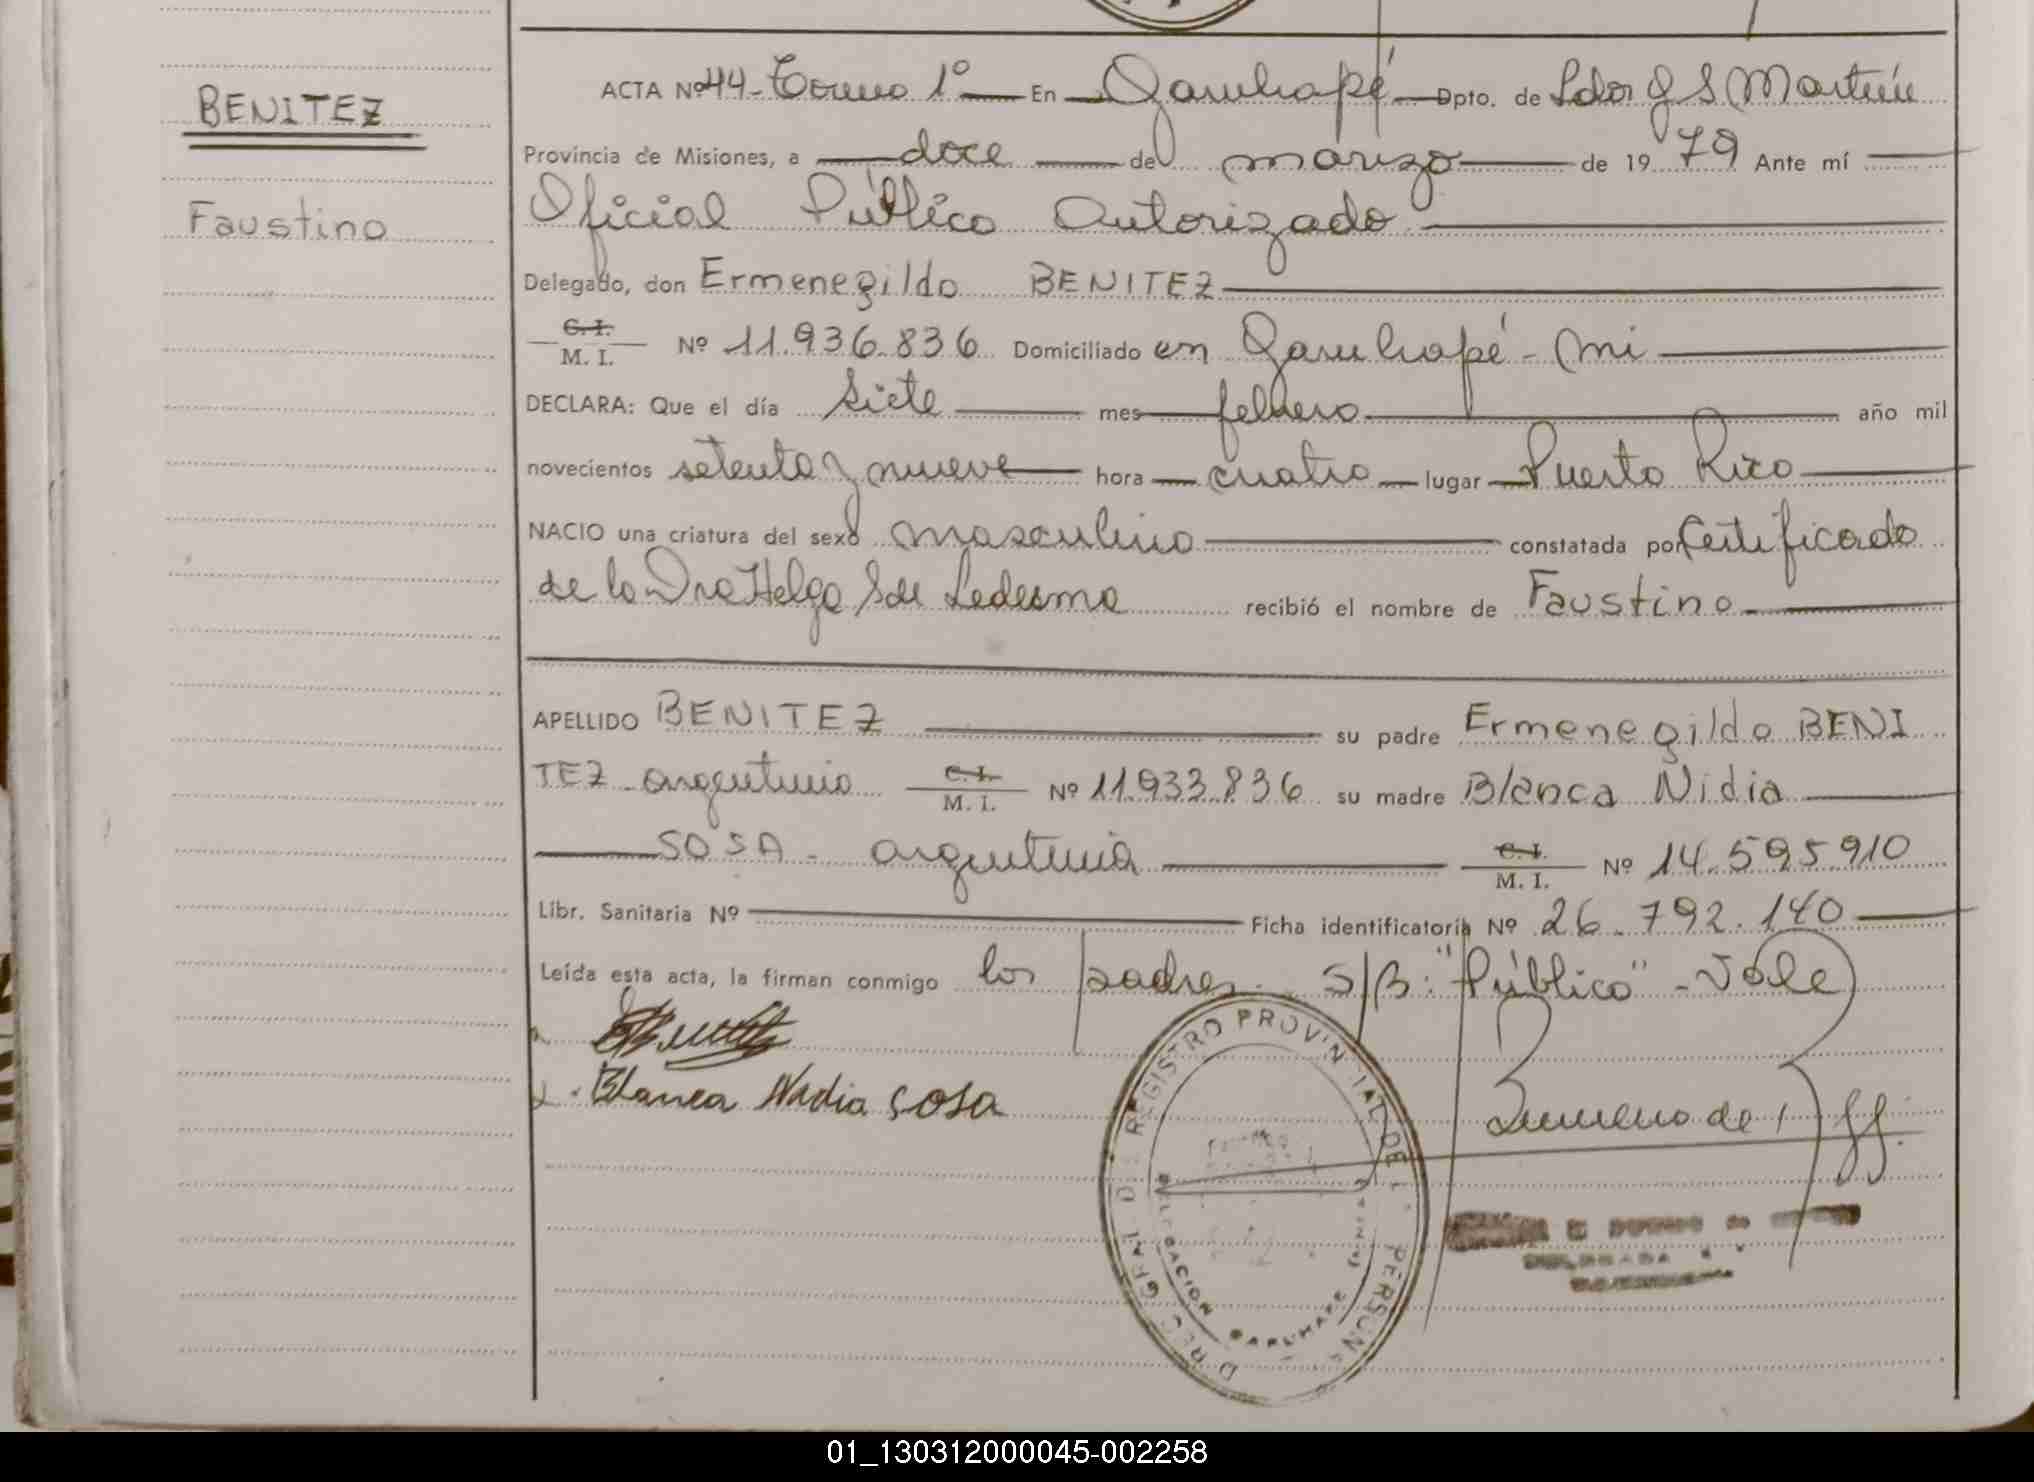 BENITEZ
Faustino
ACTA Nº 44 - Tomo 1º En Garuhapé Dpto. de Ldor G S Martín
Provincia de Misiones, a doce de marzo de 1979 Ante mí
Oficial Público Autorizado
Delegado, don Ermenegildo BENITEZ
C. I. M. I. Nº 11.936.836 Domiciliado en Garuhapé - Mi
DECLARA: Que el día siete mes febrero año mil
novecientos setenta y nueve hora cuatro lugar Puerto Rico
NACIO una criatura del sexo masculino constatada por Certificado
de la Dra Helga S de Ledesma recibió el nombre de Faustino
APELLIDO BENITEZ su padre Ermenegildo BENI
TEZ - argentino C. I. M. I. Nº 11.933.836 su madre Blanca Nidia
SOSA - argentina C. I. M. I. Nº 14.595.910
Libr. Sanitaria Nº Ficha identificatoria Nº 26.792.140
Leída esta acta, la firman conmigo los padres. S/B: "Público" - Vale
Blanca Nidia Sosa
DIREC. GRAL. DE REGISTRO PROVINCIAL DE L PERSON
DELEGACION GARUHAPE
DELEGADA
01_130312000045-002258